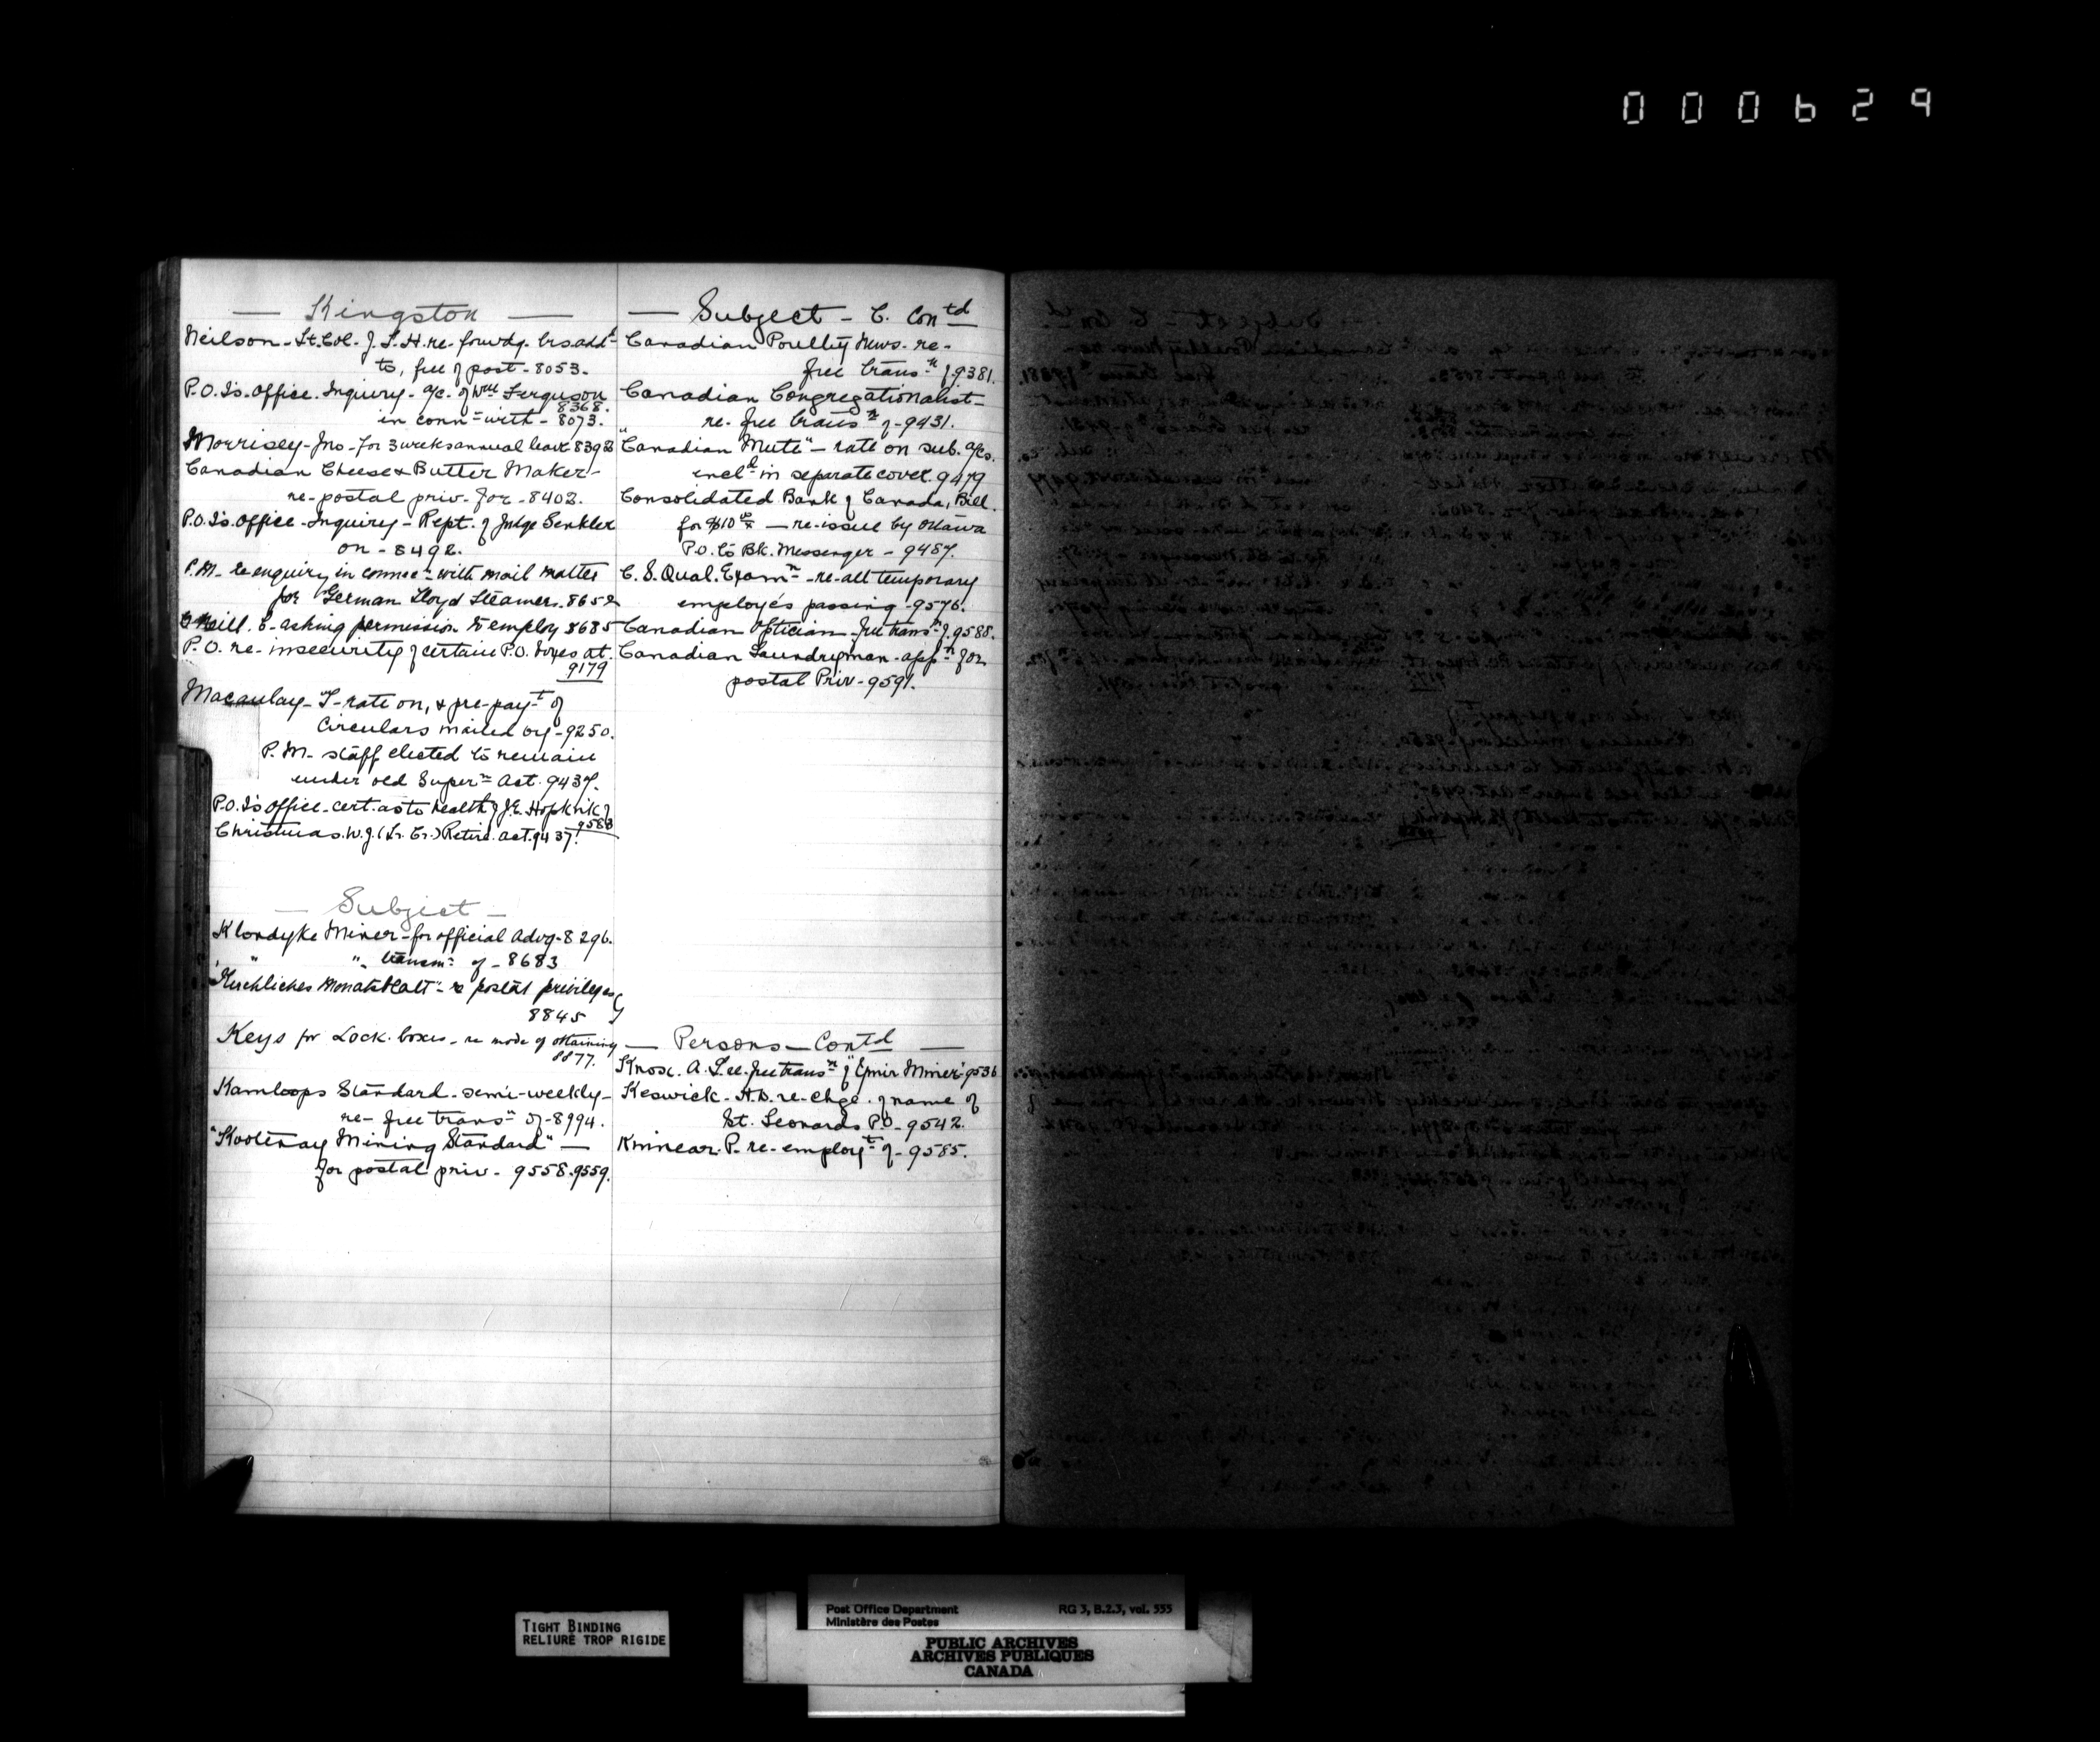 000629
— Kingston —
Neilson - Lt. Col. J. L. H. re- forwdg. lrs. add^d
to, free of post - 8053.
P.O. Is. Office. Inquiry - a/c. of Wm Ferguson
8368.
in conn^n with - 8073.
Morrisey - Jno - for 3 weeks annual leave 8392
Canadian Cheese & Butter Maker -
re- postal priv- for - 8402.
P.O. Is. Office - Inquiry - Rept. of Judge Senkler
on - 8492.
P.M. re enquiry in connec^n with mail matter
for German Lloyd Steamers. 8652
O'Neill. E - asking permission to employ 8685
P.O. re- insecurity of certain P.O. boxes at.
9179
Macaulay - T - rate on, & pre-pay^t of
Circulars mailed by - 9250.
P.M. staff elected to remain
under old Super^n Act. 9437.
P.O. Is Office - cert. as to health of J.E. Hopkirk
9583
Christmas. W.J. (Lr. Cr.) Retire. act. 9437.
— Subject —
Klondyke Miner - for official Advg - 8296.
" " - transm^n of - 8683
"Kirchliches Monatsblatt" - re postal privileges
8845
Keys for Lock. boxes - re mode of obtaining
8877.
Kamloops Standard - semi-weekly -
re- free trans^n of - 8994.
"Kootenay Mining Standard" —
for postal priv - 9558. 9559.
— Subject - C. Con^td
Canadian Poultry News - re -
free trans^n of. 9381.
Canadian Congregationalist -
re- free trans^n of - 9431.
"Canadian Mute" - rate on sub. a/cs.
incl^d in separate cover. 9479
Consolidated Bank of Canada, Bill.
for $10 — re-issue by Ottawa
P.O. to Bk. Messenger - 9487.
C. S. Qual. Exam^n - re- all temporary
employés passing - 9576.
Canadian Optician - free trans^n of. 9588.
Canadian Laundryman - app^n for
postal Priv - 9591.
— Persons - Contd —
Knox. A. Lee. free trans^n of "Ymir Miner" 9536
Keswick - H.D. re- chge. of name of
St. Leonards P.O - 9542.
Kinnear. P - re- employ^t of - 9585.
TIGHT BINDING
RELIURE TROP RIGIDE
Post Office Department RG 3, B.2.3, vol. 555
Ministère des Postes
PUBLIC ARCHIVES
ARCHIVES PUBLIQUES
CANADA